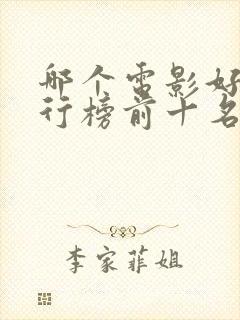 哪个电影好
行榜前十名
李家菲姐